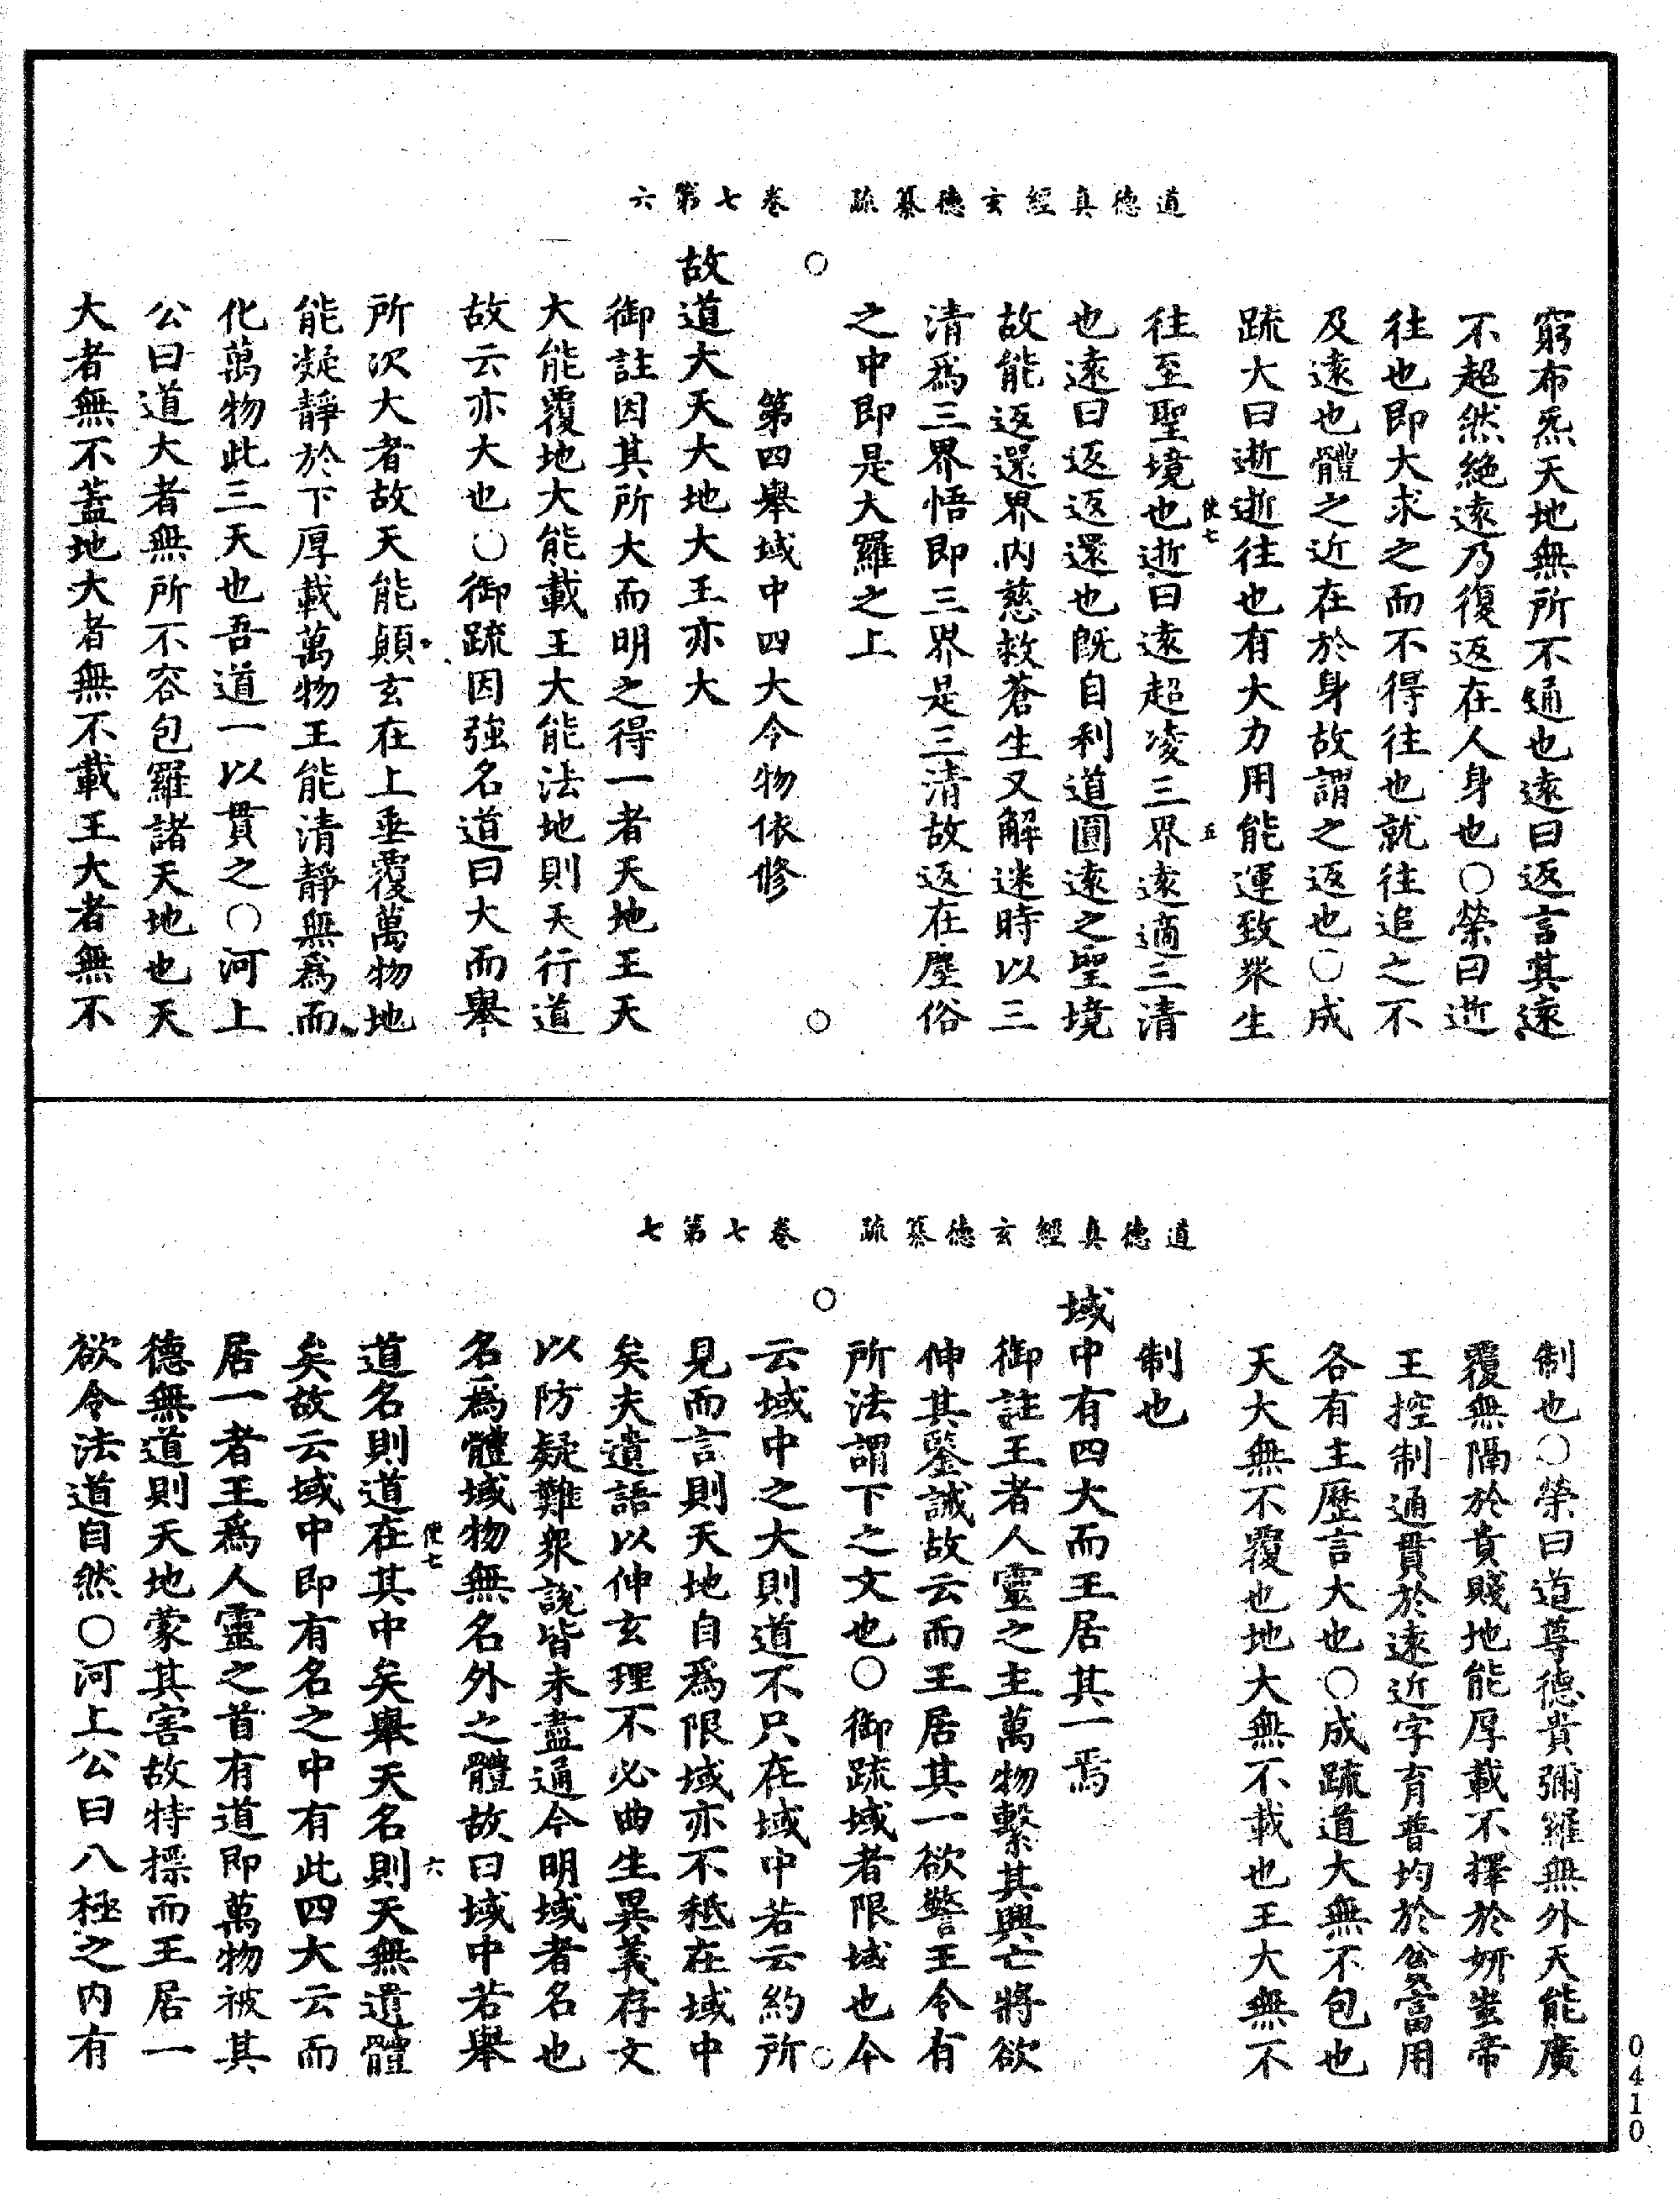 道德真經玄德纂疏　卷七第六
窮布炁天地無所不通也遠曰返言其遠
不超然絶遠乃復返在人身也○榮曰逝
往也即大求之而不得往也就往追之不
及遠也體之近在於身故謂之返也○成
疏大曰逝逝往也有大力用能運致衆生
使七　五
往至聖境也逝曰遠超凌三界遠適三清
也遠曰返返還也旣自利道圓遠之聖境
故能返還界内慈救蒼生又解迷時以三
清爲三界悟即三界是三清故返在塵俗
之中即是大羅之上
○　○
第四舉域中四大令物依修
故道大天大地大王亦大
御註因其所大而明之得一者天地王天
大能覆地大能載王大能法地則天行道
故云亦大也○御疏因強名道曰大而舉
所次大者故天能顛玄在上垂覆萬物地
能凝靜於下厚載萬物王能清靜無爲而
化萬物此三天也吾道一以貫之○河上
公曰道大者無所不容包羅諸天地也天
大者無不蓋地大者無不載王大者無不
道德真經玄德纂疏　卷七第七
制也○榮曰道尊德貴彌羅無外天能廣
覆無隔於貴賤地能厚載不擇於姸蚩帝
王控制通貫於遠近字育普均於公當用
各有主歷言大也○成疏道大無不包也
天大無不覆也地大無不載也王大無不
制也
域中有四大而王居其一焉
御註王者人靈之主萬物繫其興亡將欲
伸其鑒誡故云而王居其一欲警王令有
所法謂下之文也○御疏域者限域也今
○　○
云域中之大則道不只在域中若云約所
見而言則天地自爲限域亦不秖在域中
矣夫遺語以伸玄理不必曲生異義存文
以防疑難衆說皆未盡通今明域者名也
名爲體域物無名外之體故曰域中若舉
使七　六
道名則道在其中矣舉天名則天無遺體
矣故云域中即有名之中有此四大云而
居一者王爲人靈之首有道即萬物被其
德無道則天地蒙其害故特摽而王居一
欲令法道自然○河上公曰八極之内有
0410